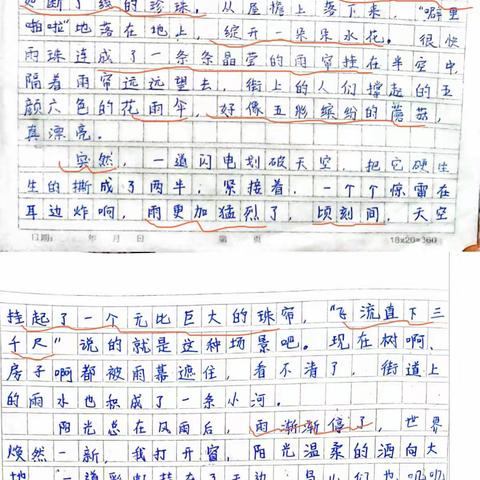 如断了线的珍珠。从屋檐上落下来，"噼里
啪啦"地落在地上，绽开一朵朵水花。很快
雨珠连成了一条条晶莹的雨帘挂在半空中，
隔着雨帘远远望去，街上的人们撑起的五
颜六色的花雨伞，好像五彩缤纷的蘑菇，
真漂亮。
突然，一道闪电划破天空，把它硬生
生的撕成了两半，紧接着，一个个惊雷在
耳边炸响，雨更加猛烈了，顷刻间，天空
日期： 年 月 日 第 页 18x20=360
挂起了一个无比巨大的珠帘，"飞流直下三
千尺"说的就是这种场景吧。现在树啊、
房子啊都被雨幕遮住，看不清了，街道上
的雨水也积成了一条小河。
阳光总在风雨后，雨渐渐停了，世界
焕然一新，我打开窗，阳光温柔的洒向大
地，一道彩虹挂在了天边，鸟儿们也叽叽